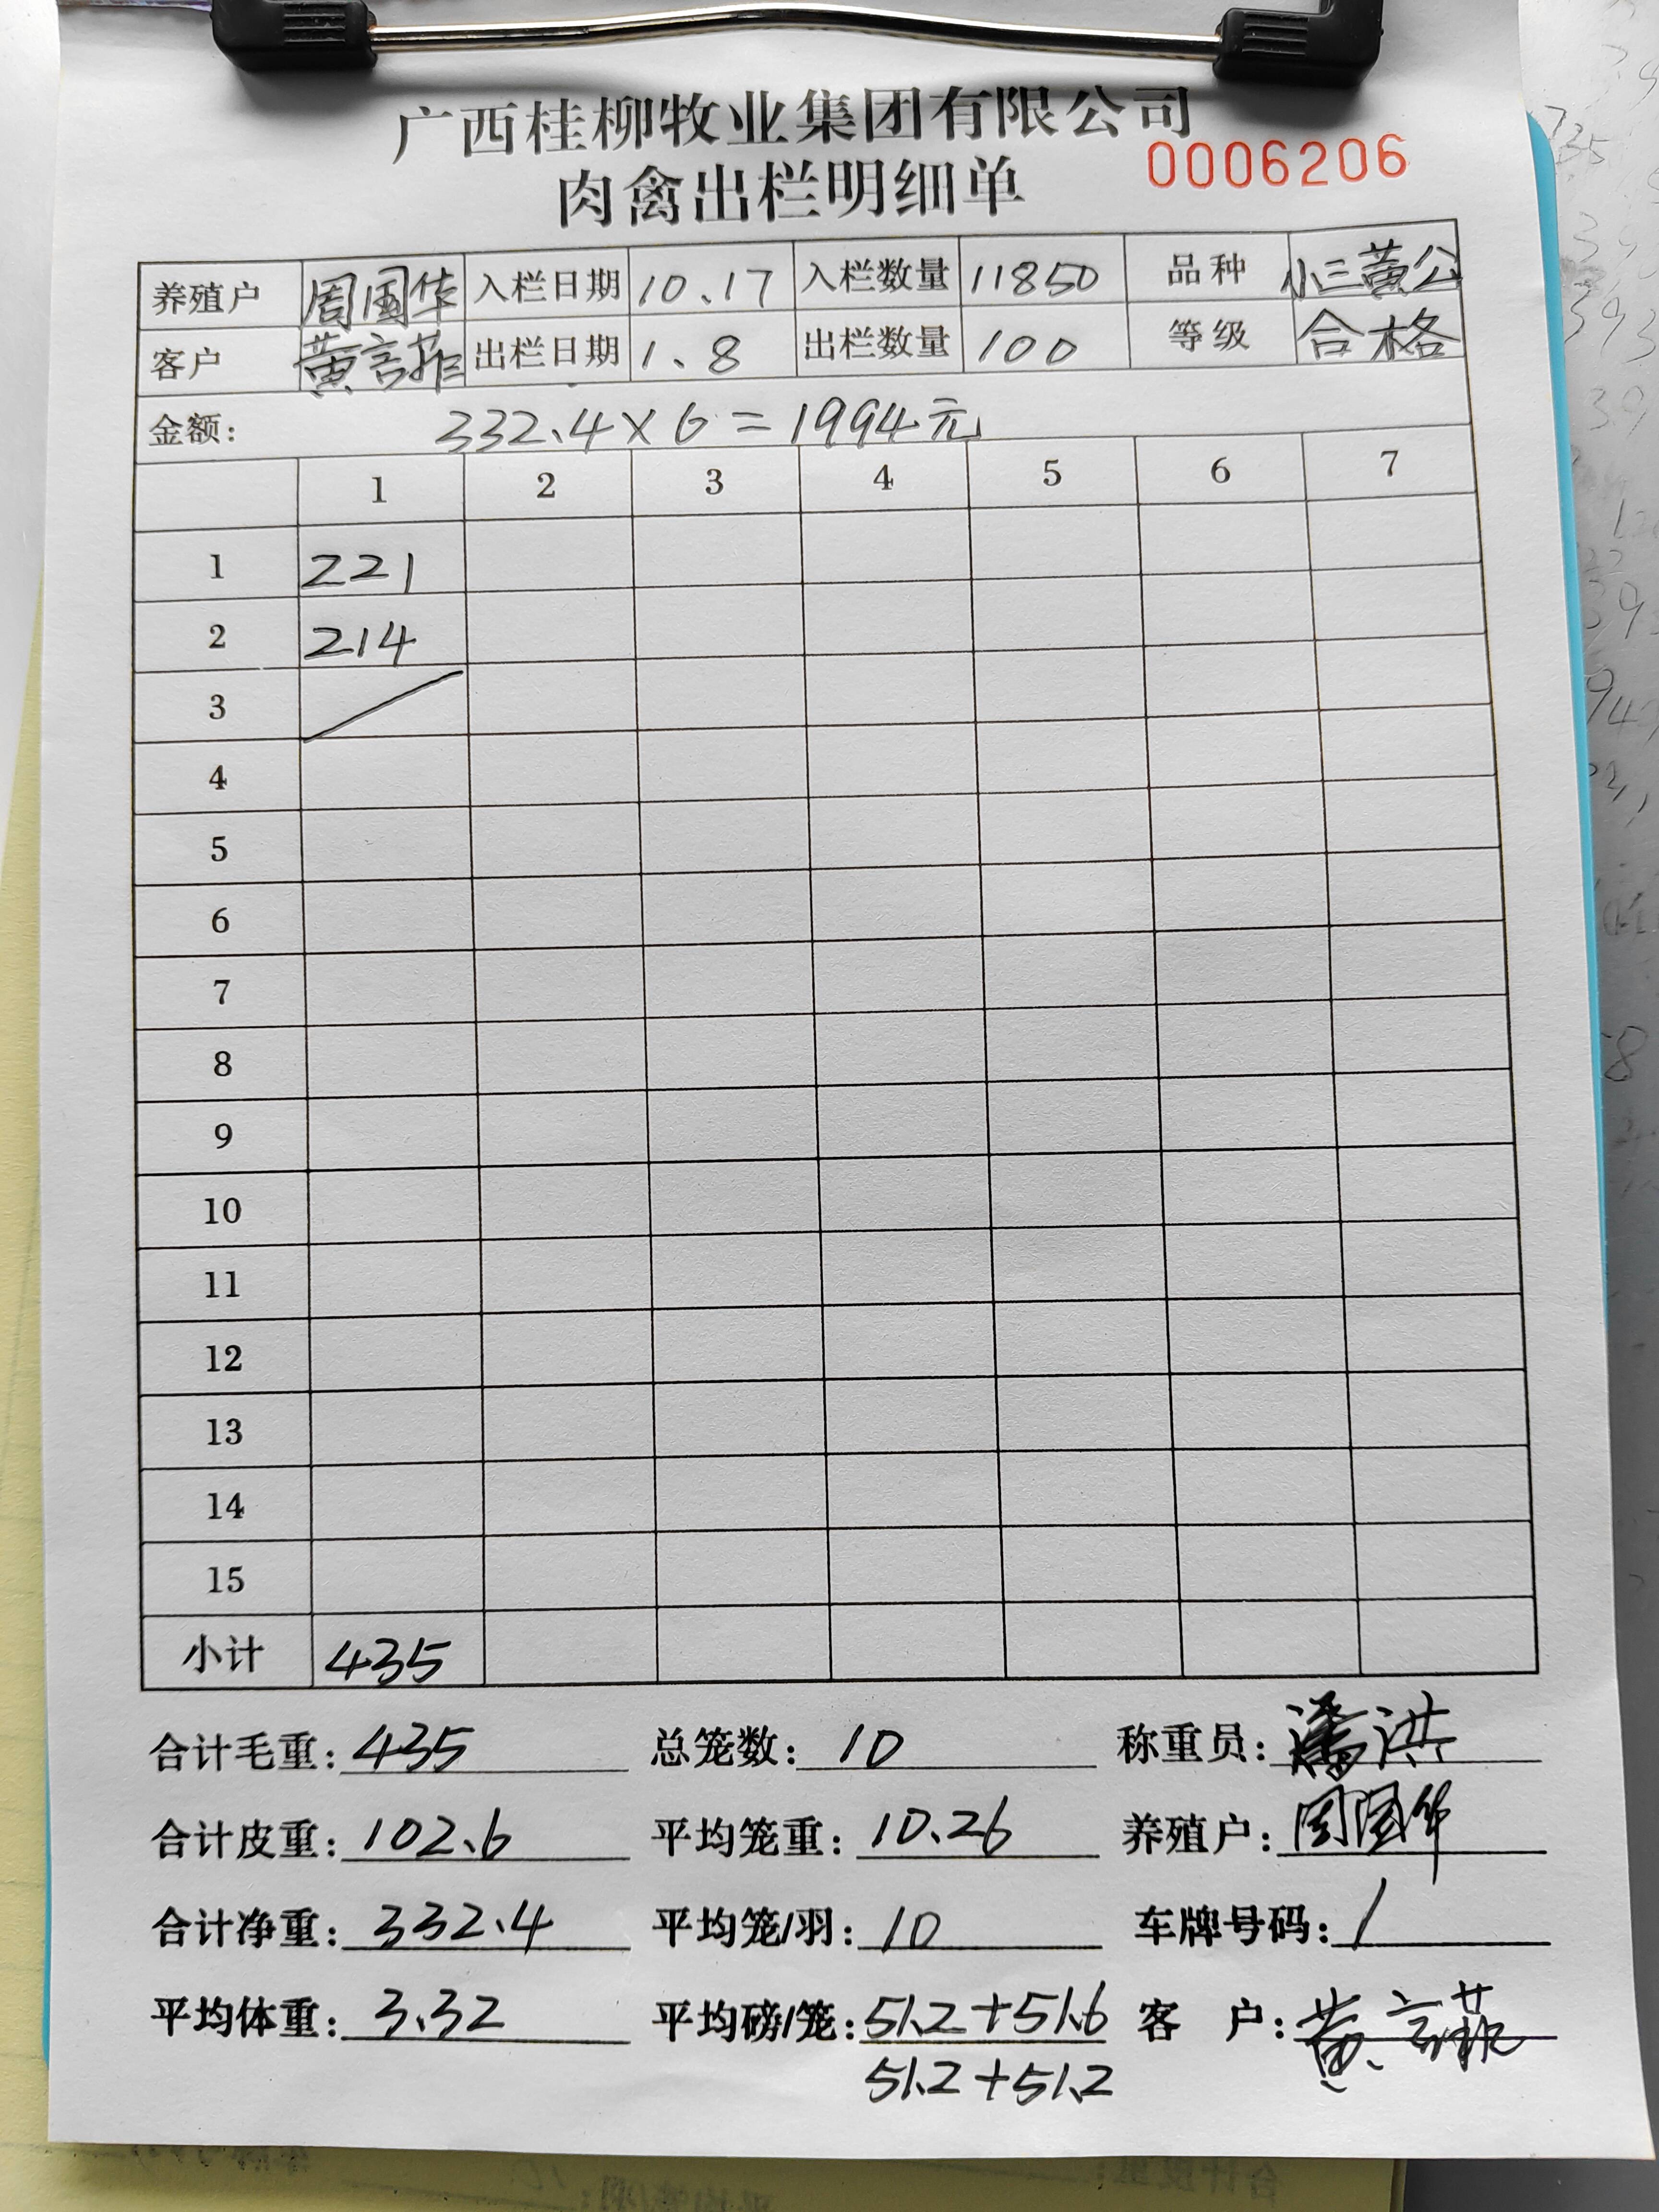 广西桂柳牧业集团有限公司
肉禽出栏明细单 0006206
养殖户 周国华 入栏日期 10.17 入栏数量 11850 品种 小三黄公
客户 黄言 出栏日期 1.8 出栏数量 100 等级 合格
金额: 332.4×6=1994元
1 2 3 4 5 6 7
1 221
2 214
3
4
5
6
7
8
9
10
11
12
13
14
15
小计 435
合计毛重: 435 总笼数: 10 称重员: 潘洪
合计皮重: 102.6 平均笼重: 10.26 养殖户: 周国华
合计净重: 332.4 平均笼/羽: 10 车牌号码: /
平均体重: 3.32 平均磅/笼: 51.2+51.6 客 户: 黄言
51.2+51.2